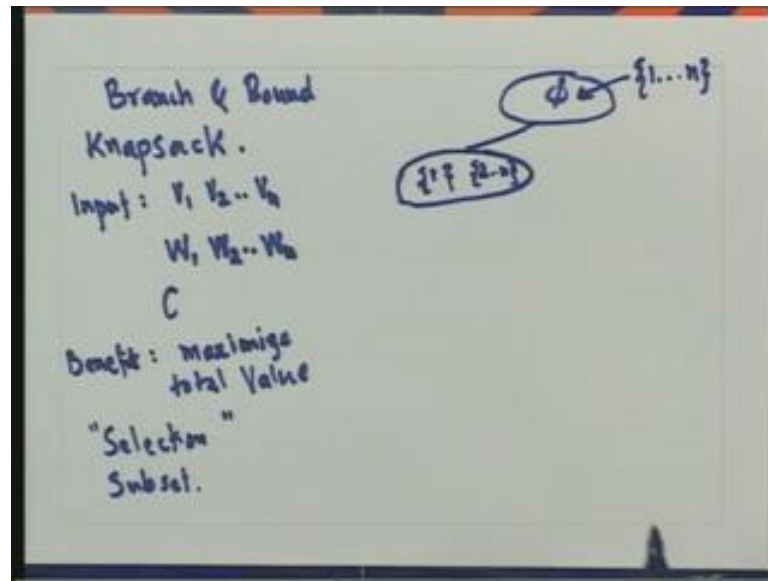 Branch & Bound
Knapsack.
Input: V₁ V₂.. Vₙ
W₁ W₂.. Wₙ
C
Benefit: maximize
total Value
"Selection"
Subset.
ϕ {1...n}
{1} {2..n}